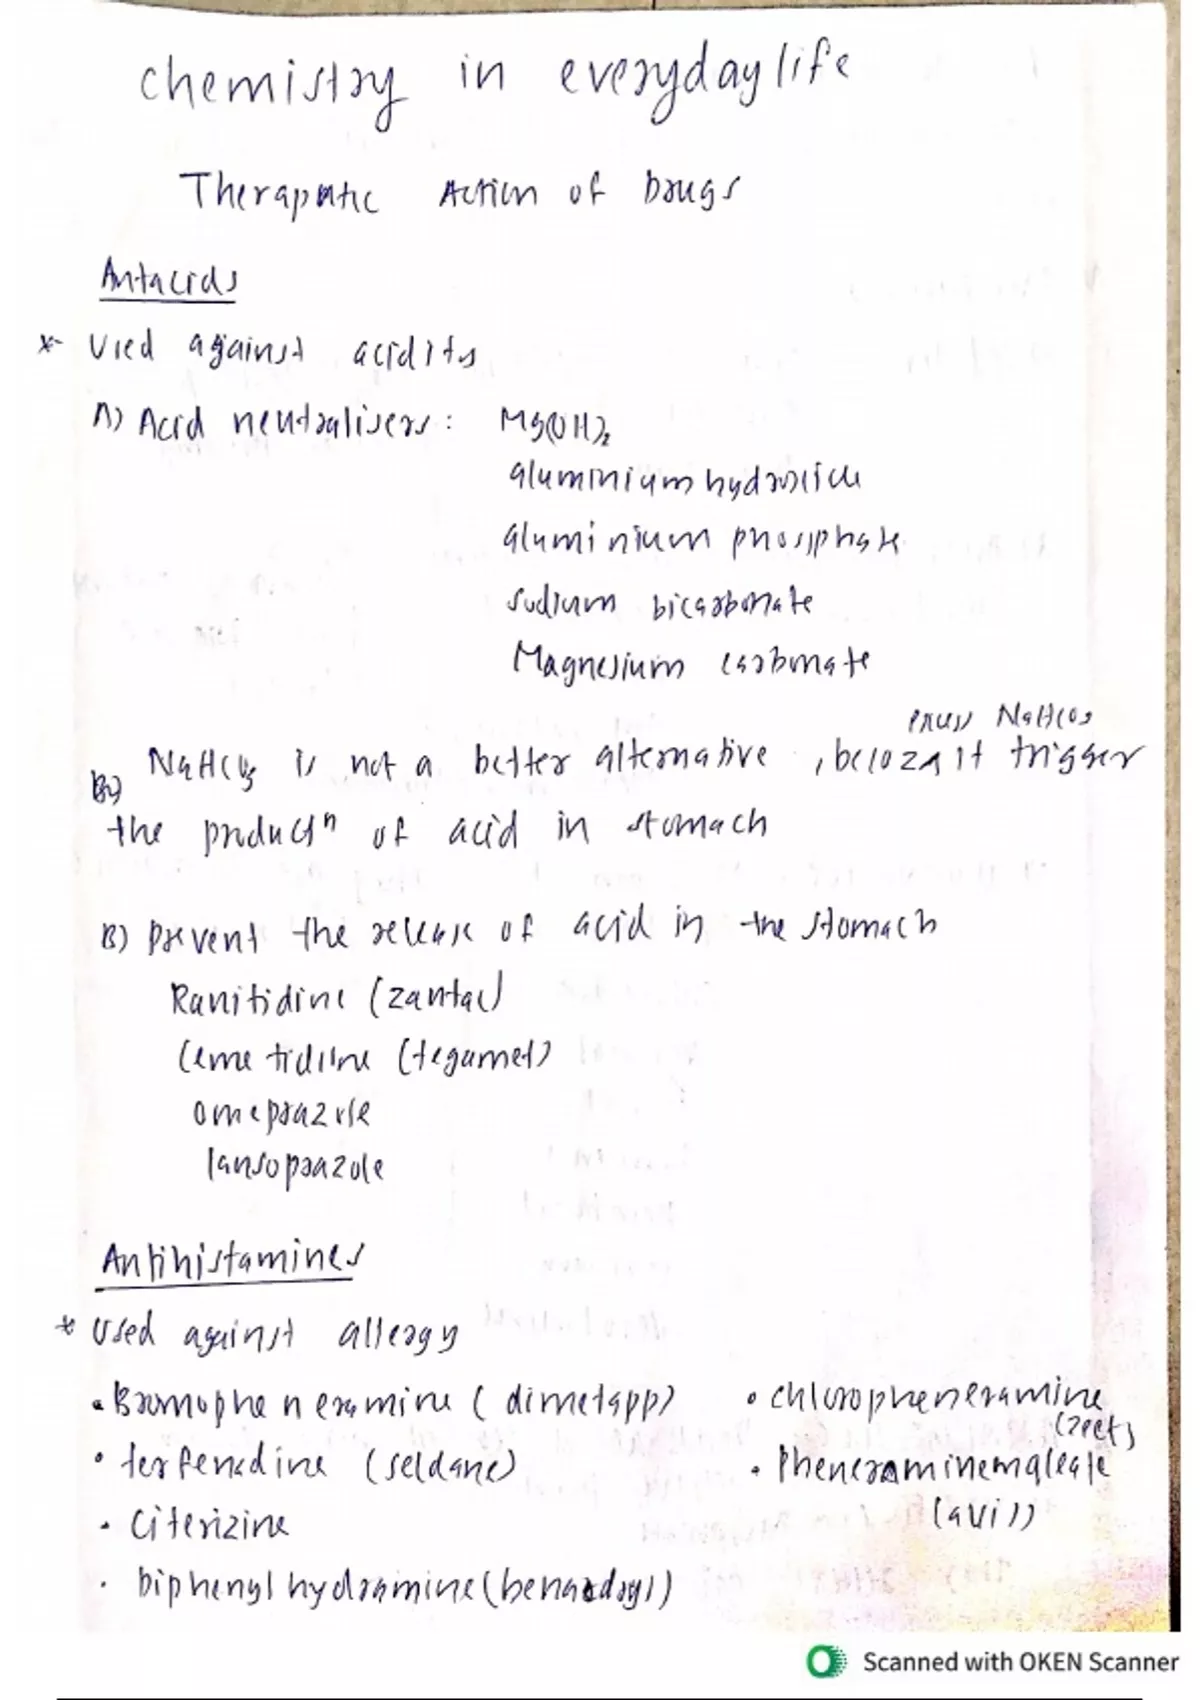 chemistry in everyday life
Theraputic Action of Drugs
Antacids
* Used against acidity
A) Acid neutralisers : Mg(OH)2
aluminium hydroxide
aluminium phosphate
sodium bicarbonate
Magnesium carbonate
excess NaHCO3
NaHCO3 is not a better alternative , becoz it trigger
the productn of acid in stomach
B) Prevent the release of acid in the stomach
Ranitidine (zantac)
Cemetidine (tegamet)
omeprazole
lansoprazole
Antihistamines
* Used against allergy
• Bromopheneramine ( dimetapp) • chloropheneramine
(zeet)
• terfenadine (seldane) • Pheneraminemaleate
(avil)
• Citerizine
• Diphenylhydramine (benardoyl)
Scanned with OKEN Scanner